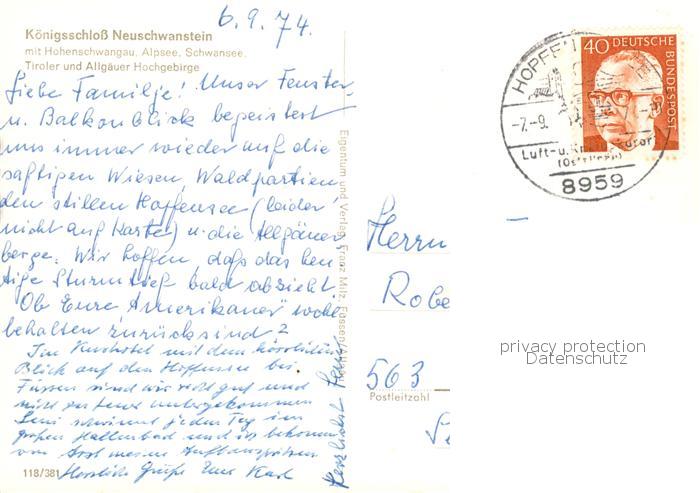 6.9.74.
Königsschloß Neuschwanstein
mit Hohenschwangau, Alpsee, Schwansee,
Tiroler und Allgäuer Hochgebirge
Liebe Familie! Unser Fenster-
u. Balkonblick begeistert
uns immer wieder auf die
saftigen Wiesen, Waldpartien
den stillen Hopfensee (leider
nicht auf Karte) u. die Allgäuer
berge. Wir hoffen, daß das heu
tige Sturmtief bald abzieht.
Ob Eure "Amerikaner" wohl
behalten zurück sind?
Im Kurhotel mit dem köstlichen
Blick auf den Hopfensee bei
Füssen sind wir recht gut und
nicht zu teuer untergekommen
Leni schwimmt jeden Tag im
großen Hallenbad und ich bekomme
vom Arzt meine Aufbauspritzen
Herzliche Grüße Euer Karl
Herzlichst Leni
118/381
Eigentum und Verlag Franz Milz, Füssen/Allgäu
HOPFEN
-7.-9.
Luft-u.
8959
40 DEUTSCHE BUNDESPOST
Herrn
Robe
563
Postleitzahl
privacy protection
Datenschutz